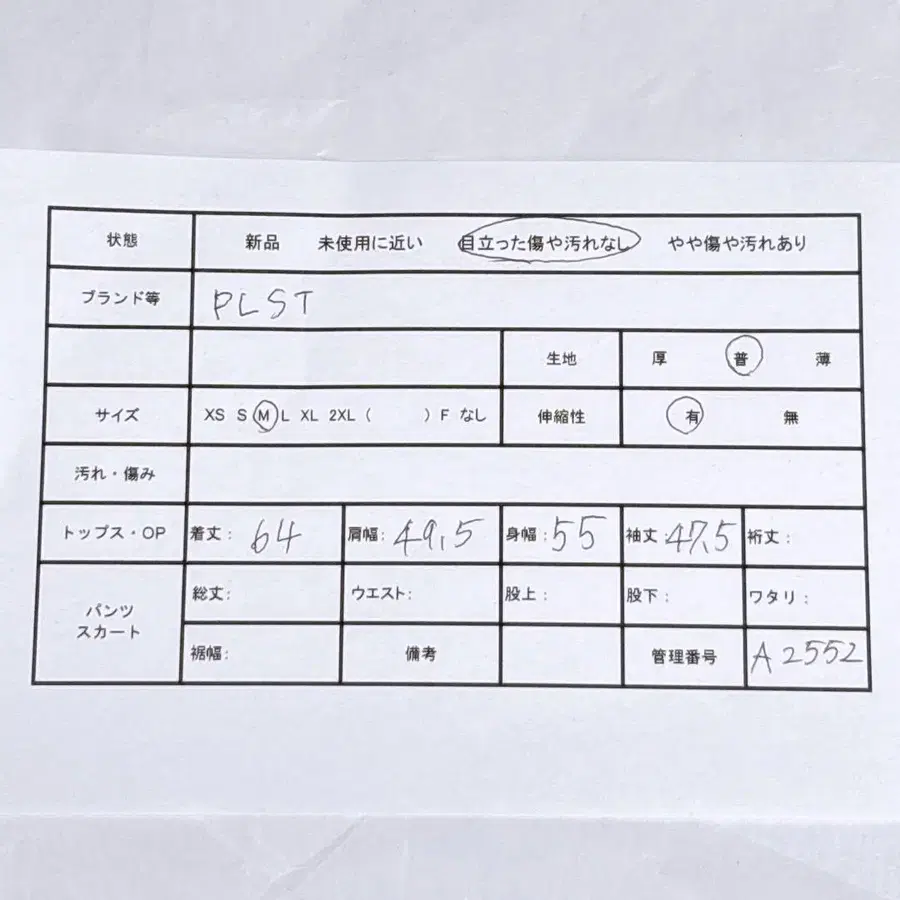 状態 新品 未使用に近い 目立った傷や汚れなし やや傷や汚れあり
ブランド等 PLST
生地 厚 普 薄
サイズ XS S M L XL 2XL ( ) F なし 伸縮性 有 無
汚れ・傷み
トップス・OP 着丈: 64 肩幅: 49.5 身幅: 55 袖丈: 47.5 裄丈:
パンツ
スカート
総丈: ウエスト: 股上: 股下: ワタリ:
裾幅: 備考 管理番号 A2552